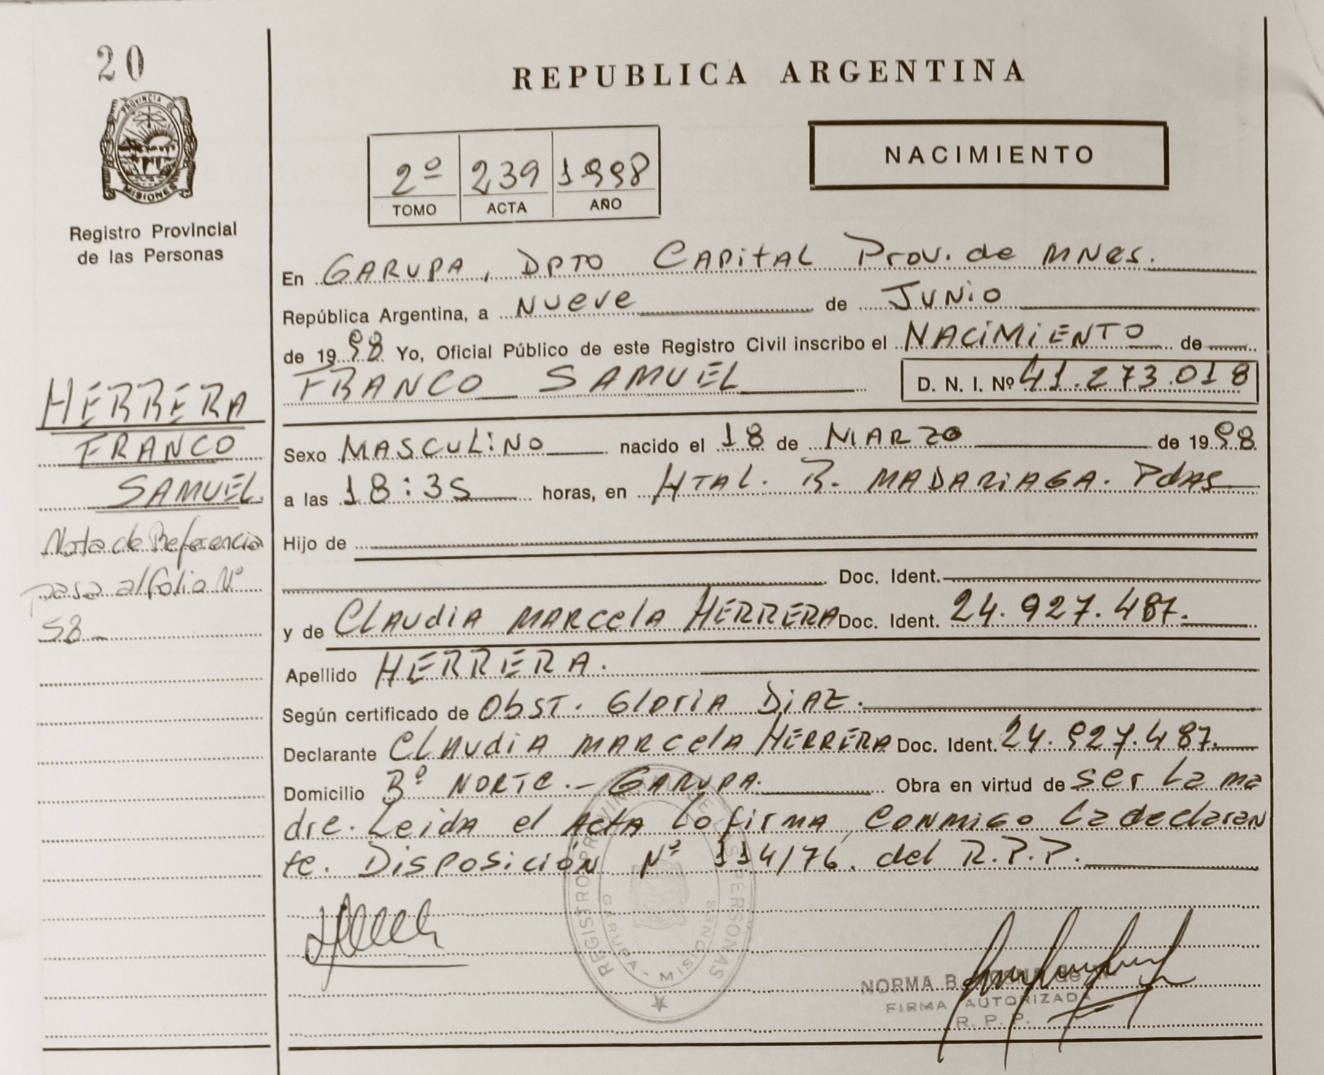 20
PROVINCIA DE
MISIONES
Registro Provincial
de las Personas
HERRERA
FRANCO
SAMUEL
Nota de Referencia
pasa al folio Nº
58
REPUBLICA ARGENTINA
2º 239 1998
TOMO ACTA AÑO
NACIMIENTO
En GARUPA, DPTO CAPITAL Prov. de MNes.
República Argentina, a NUEVE de JUNIO
de 1998 Yo, Oficial Público de este Registro Civil inscribo el NACIMIENTO de
FRANCO SAMUEL D. N. I. Nº 41.273.018
Sexo MASCULINO nacido el 18 de MARZO de 1998
a las 18:35 horas, en HTAL. R. MADARIAGA. Pdas
Hijo de
Doc. Ident.
y de CLAUDIA MARCELA HERRERA Doc. Ident. 24.927.487.
Apellido HERRERA.
Según certificado de Obst. GLORIA DIAZ.
Declarante CLAUDIA MARCELA HERRERA Doc. Ident. 24.927.487.
Domicilio Bº NORTE.- GARUPA. Obra en virtud de ser La ma
dre. Leida el Acta Lo firma conmigo La declaran
te. Disposición Nº 114/76. del R.P.P.
REGISTRO PERSONAS
GARUPA - MISIONES
NORMA B.
FIRMA AUTORIZADA
R. P. P.